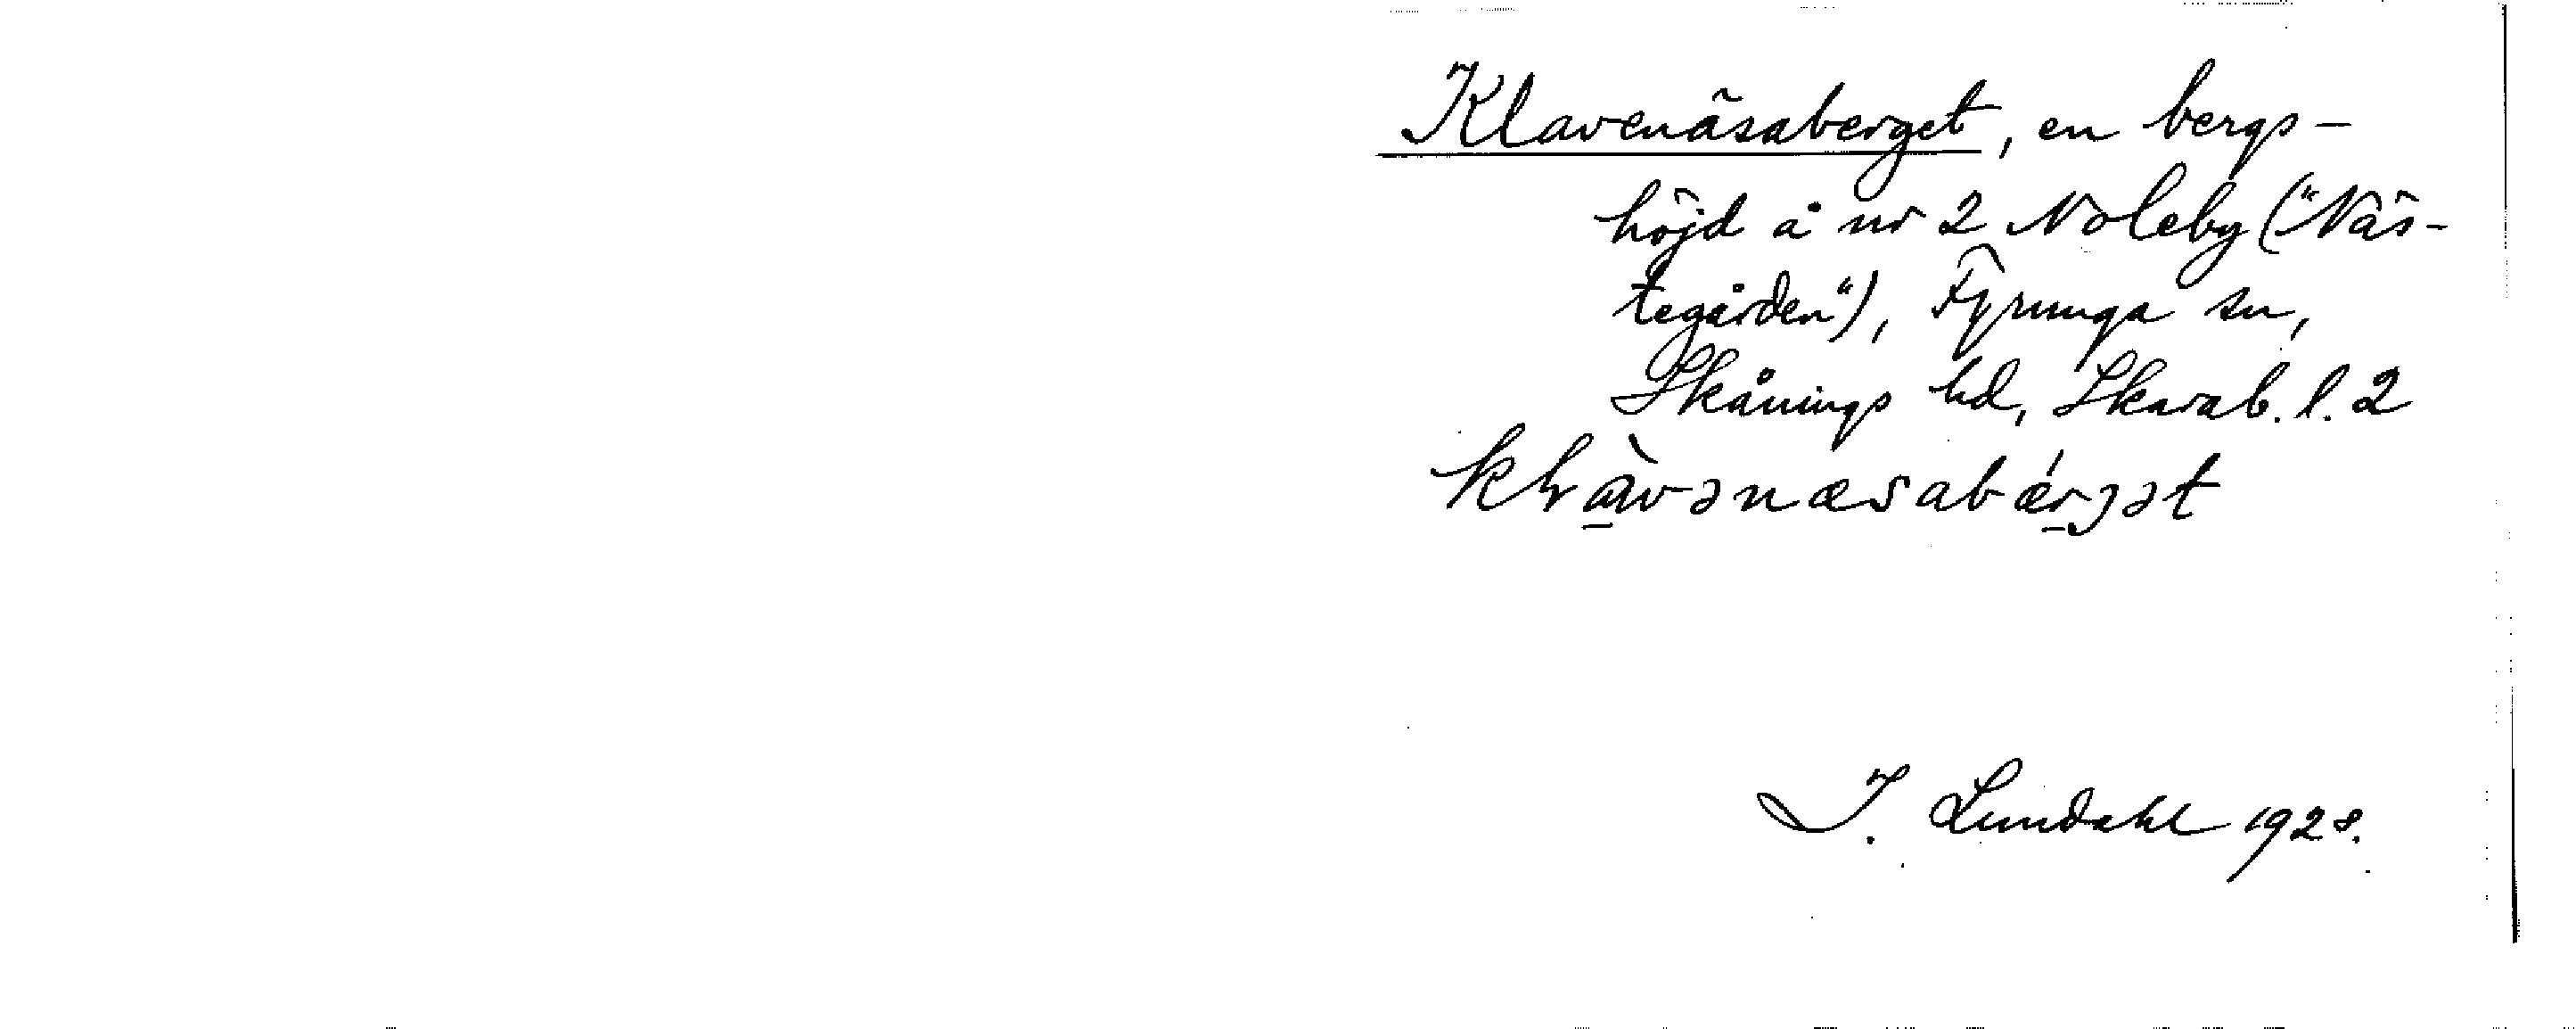 Klavenäsaberget, en bergs-
höjd å nr 2 Noleby ("Näs-
tegården"), Fyrunga sn,
Skånings hd, Skarab. l. 2
I. Lundahl 1928.